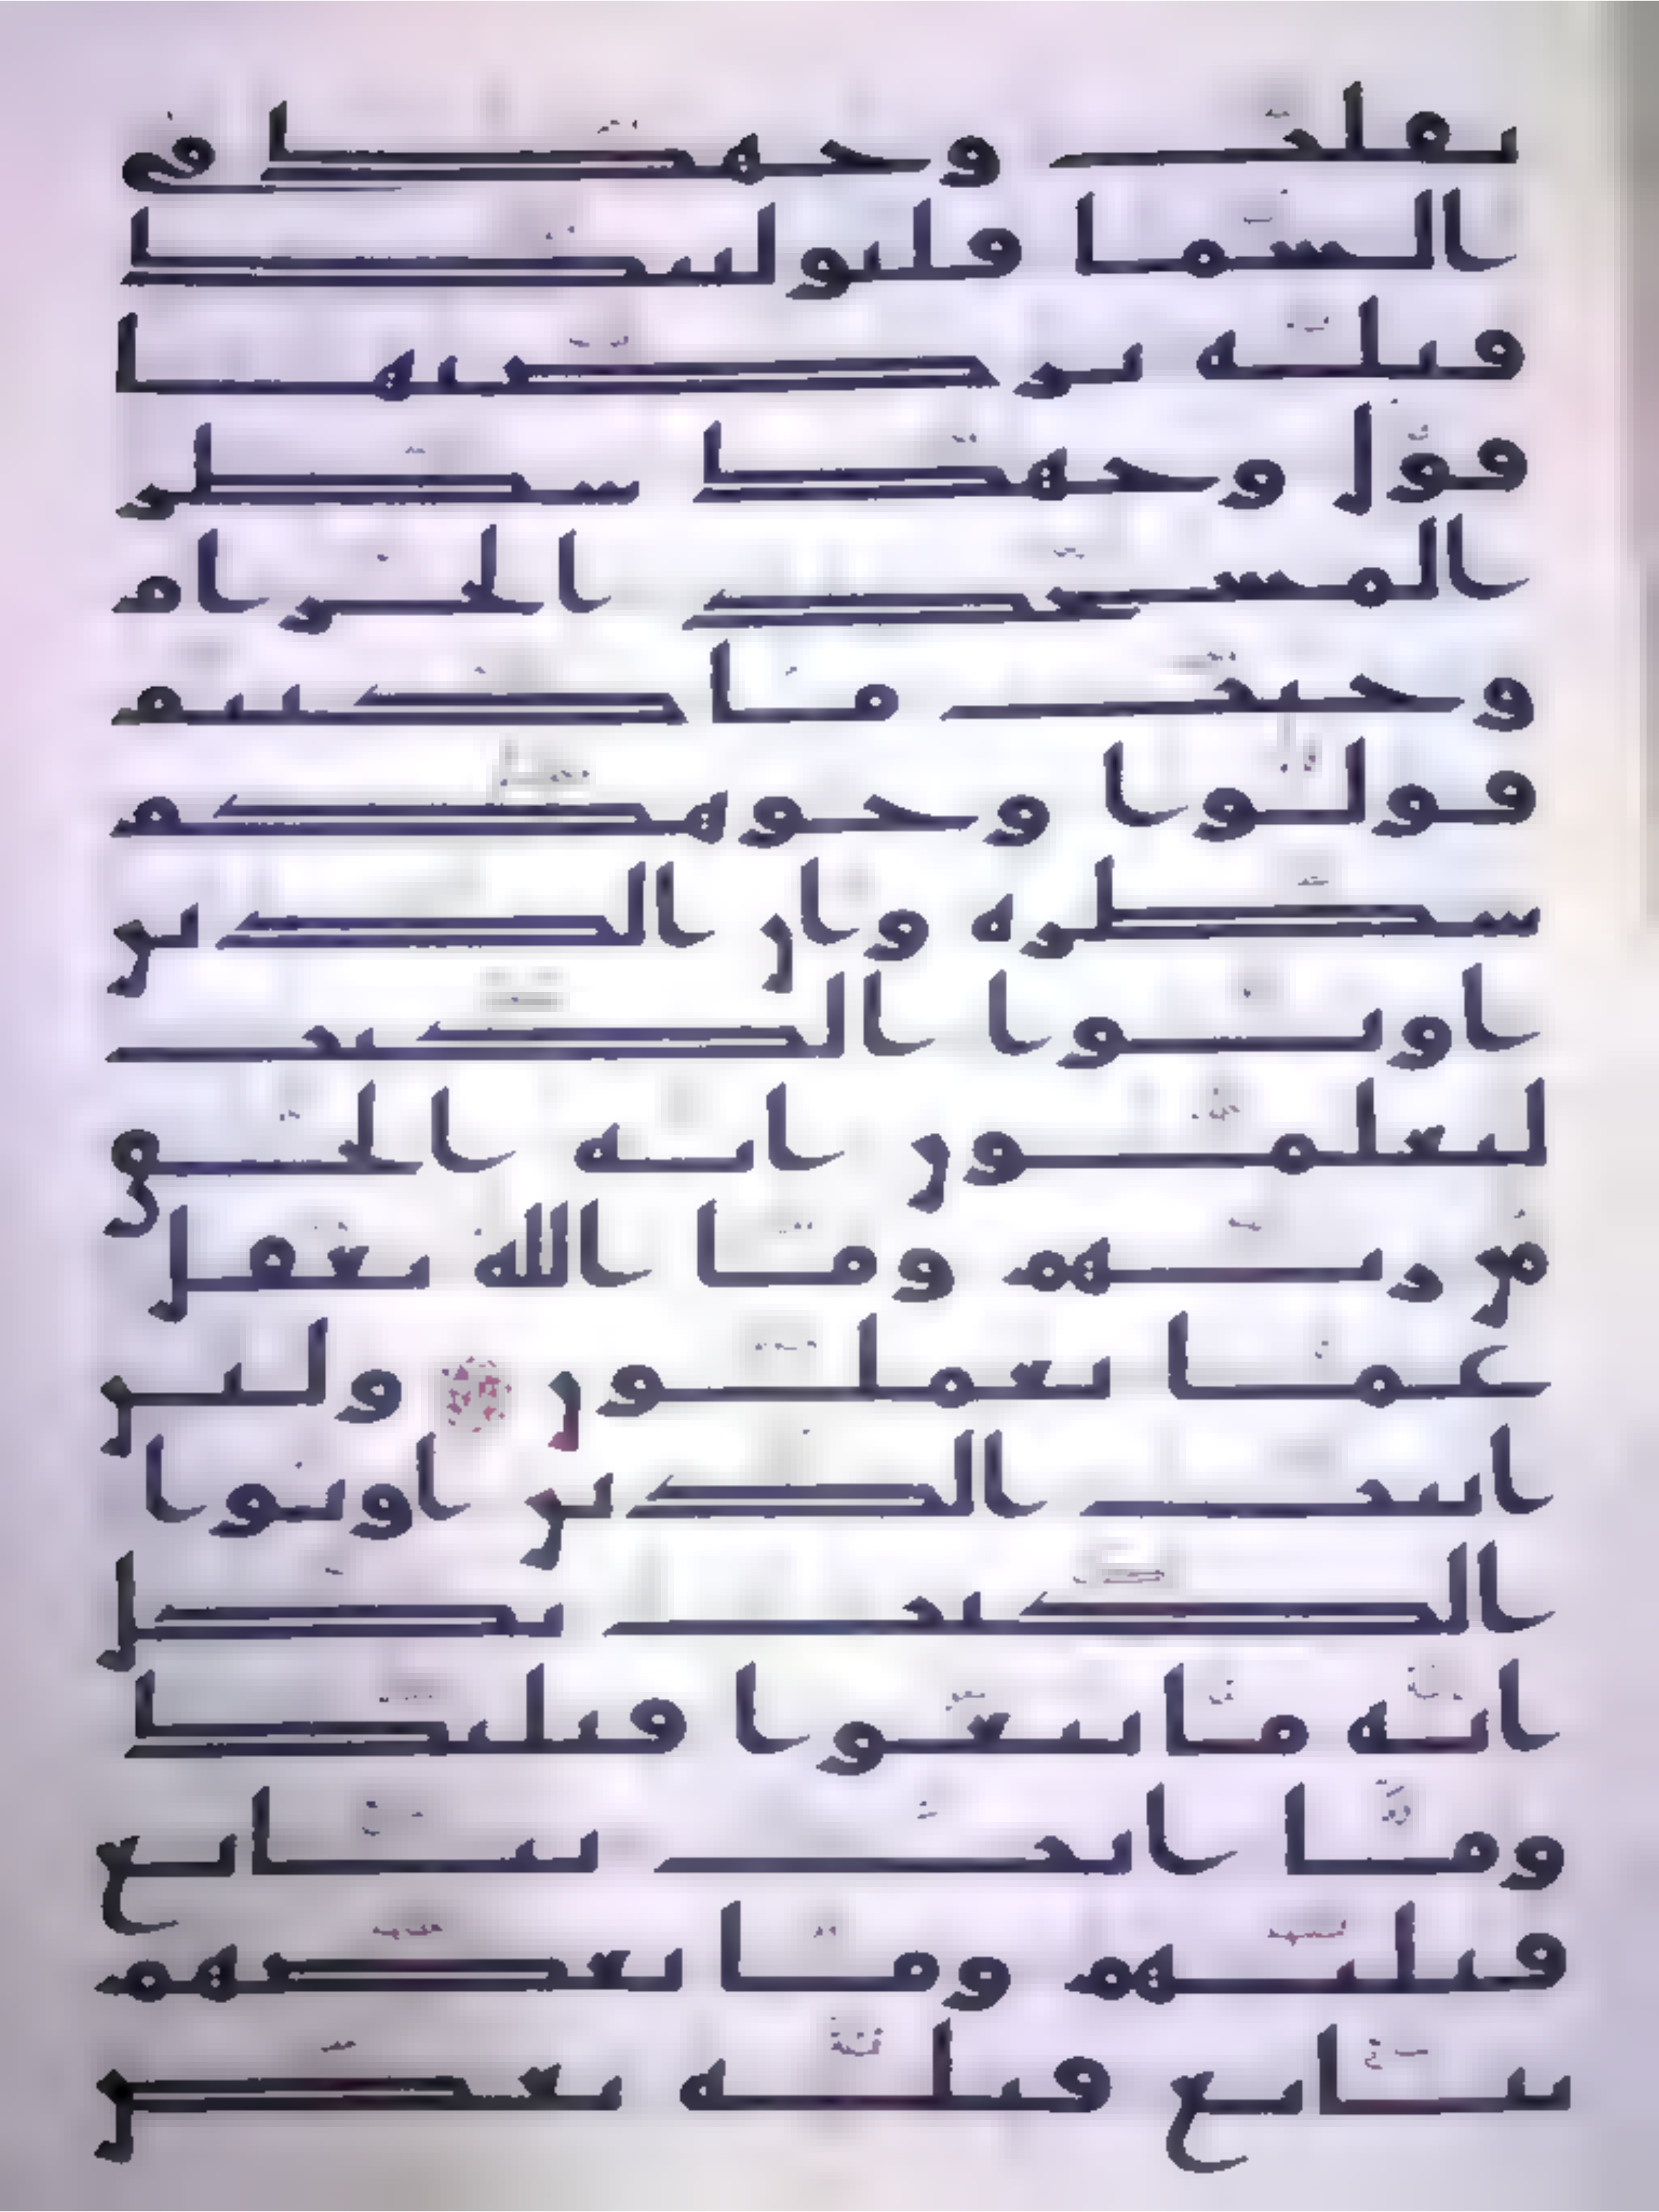 تقلب وجهك في
السما فلنولينك
قبلة ترضيها
فول وجهك شطر
المسجد الحرام
وحيث ما كنتم
فولوا وجوهكم
شطره وان الذين
اوتوا الكتب
ليعلمون انه الحق
من ربهم وما الله بغفل
عما يعملون ولئن
اتيت الذين اوتوا
الكتب بكل
اية ما تبعوا قبلتك
وما انت بتابع
قبلتهم وما بعضهم
بتابع قبلة بعض